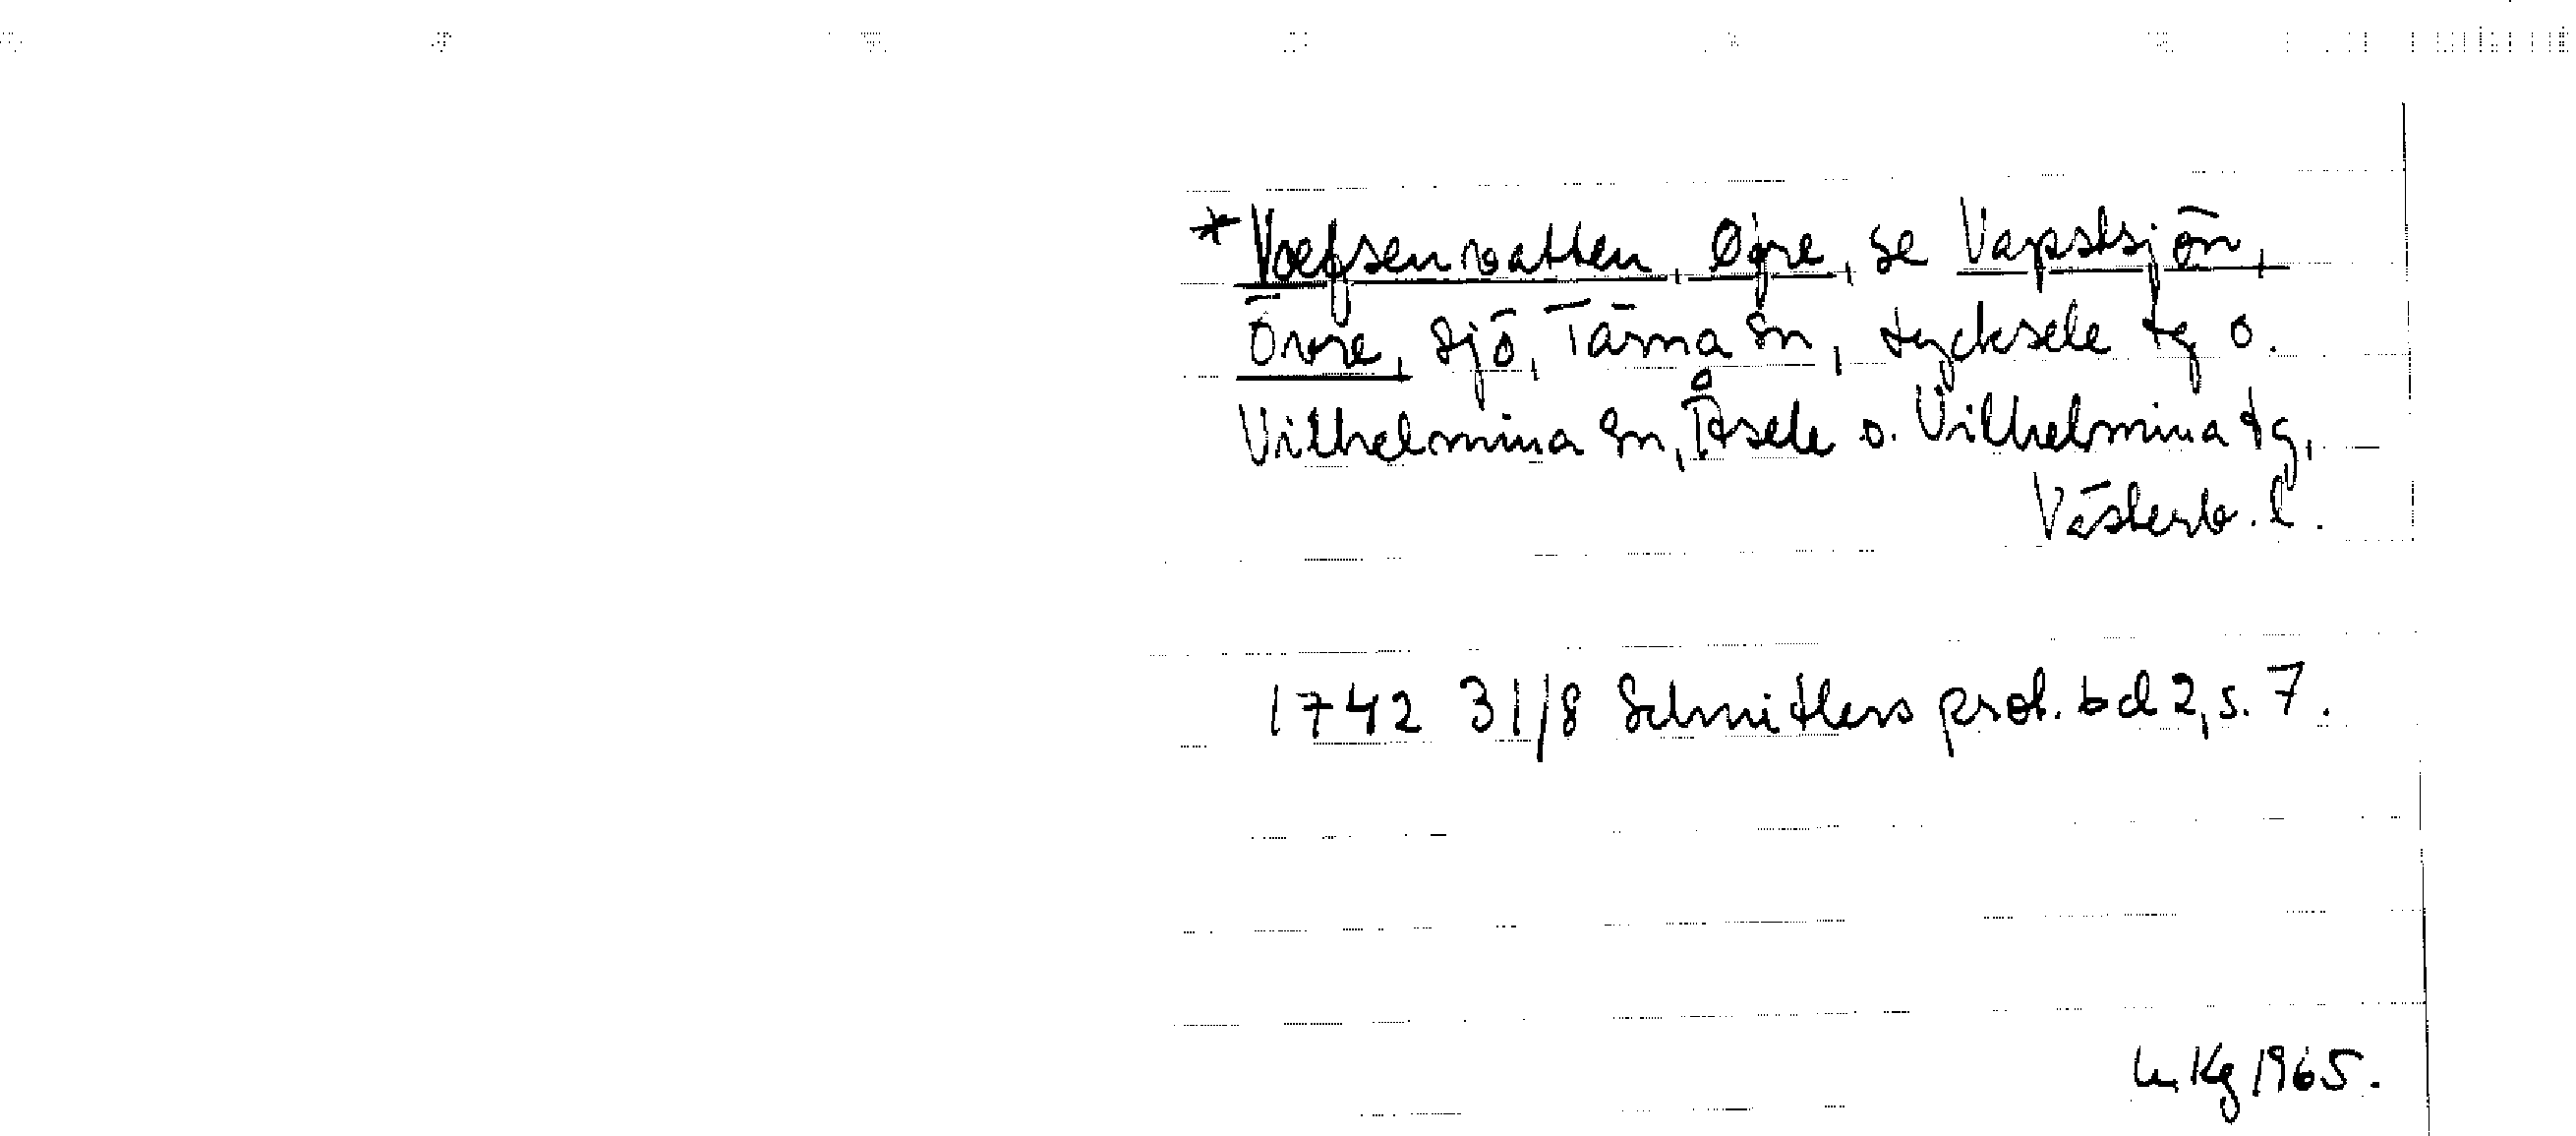 *Vœfsenvatten, Øfre, se Vapstsjön,
Övre, sjö, Tärna sn, Lycksele tg o.
Vilhelmina sn, Åsele o. Vilhelmina tg,
Västerb. l.
1742 31/8 Schnitlers prot. bd 2, s. 7.
Kg 1965.